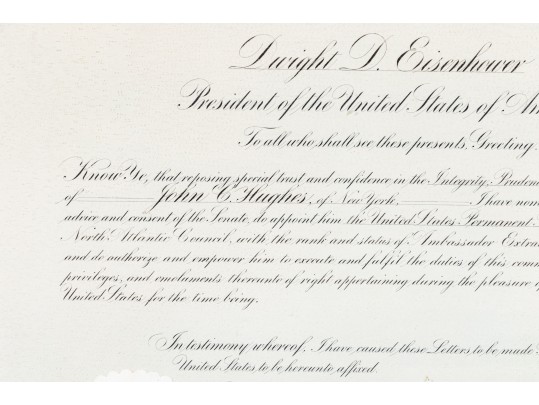 Dwight D. Eisenhower
President of the United States of Am
To all who shall see these presents, Greeting:
Know Ye, that reposing special trust and confidence in the Integrity, Prudenc
of John C. Hughes, of New York, I have nom
advice and consent of the Senate, do appoint him the United States Permanent
North Atlantic Council, with the rank and status of Ambassador Extra
and do authorize and empower him to execute and fulfil the duties of this comm
privileges, and emoluments thereunto of right appertaining during the pleasure o
United States for the time being.
In testimony whereof, I have caused these Letters to be made
United States to be hereunto affixed.